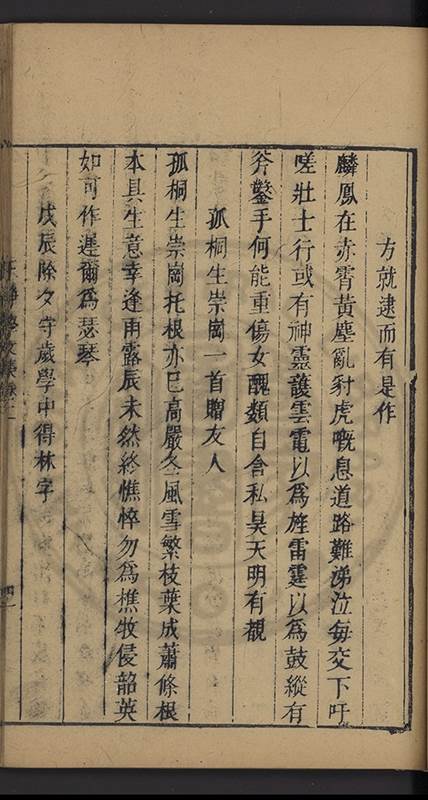 方就逮而有是作
麟鳳在赤霄黄塵亂豺虎嘅息道路難涕泣每交下吁
嗟壯士行或有神靈護雲電以爲旌雷霆以爲鼓縱有
斧鑿手何能重傷女醜類自含私昊天明有覩
孤桐生崇崗一首贈友人
孤桐生崇崗托根亦已高嚴冬風雪繁枝葉成蕭條根
本具生意幸逢雨露辰未然終憔悴勿爲樵牧侵韶英
如可作遲爾爲瑟琴
戊辰除夕守歲學中得林字